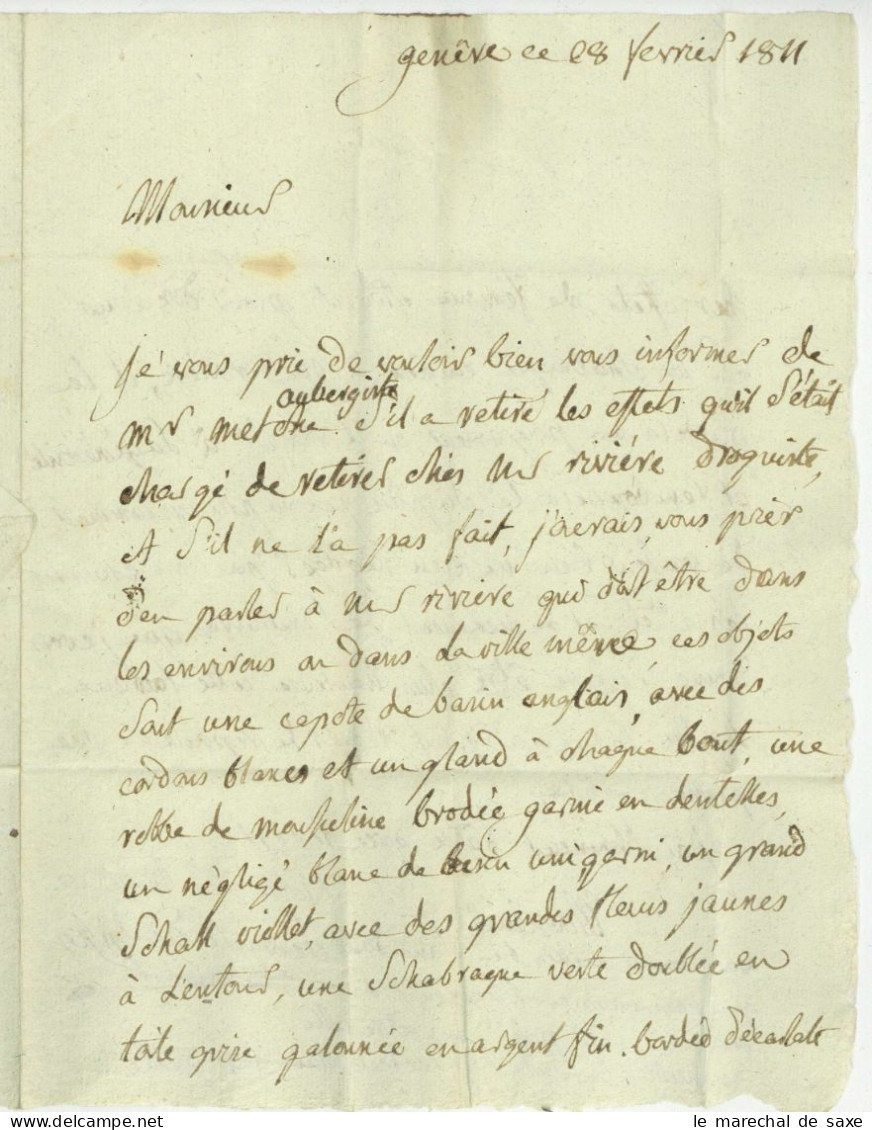 genêve ce 28 fevrier 1811
Monsieur
Je vous prie de vouloir bien vous informer de
aubergiste
mr s'il a retiré les effets qu'il s'était
chargé de retirer ches mr riviére droguiste,
et s'il ne l'a pas fait, j'oserais vous prier
d'en parler à mr riviere qui doit être dans
les environs ou dans la ville même, ces objets
sont une capote de basin englais, avec des
cordons blancs et un gland à chaque bout, une
robbe de mousseline brodée garnie en dentelles,
un négligé blanc de basin uni garni, un grand
Schall viollet, avec des grandes fleurs jaunes
à l'entour, une Schabraque verte doublée en
toile grise galonnée en argent fin. bordée d'écarlate
le marechal de saxe